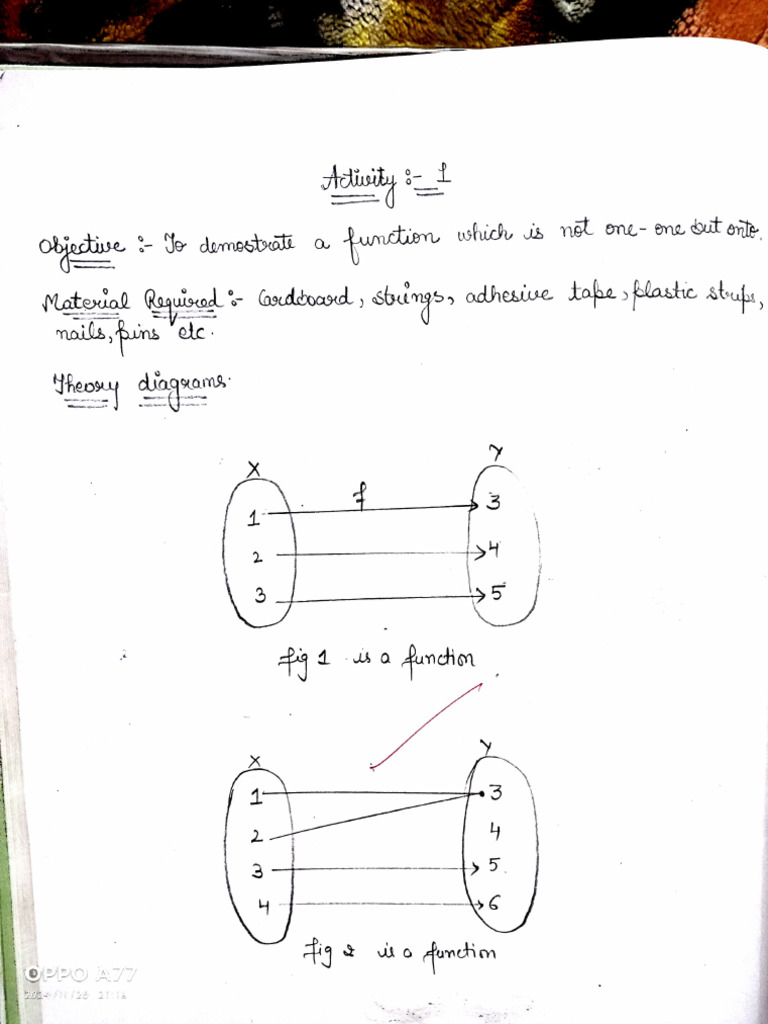 Activity :- 1
Objective :- To demostrate a function which is not one-one but onto.
Material Required :- Cardboard, strings, adhesive tape, plastic strips,
nails, pins etc.
Theory diagrams.
X Y
f
1 3
2 4
3 5
fig 1 is a function
X Y
1 3
2 4
3 5
4 6
fig 2 is a function
OPPO A77
2024/11/28 21:16